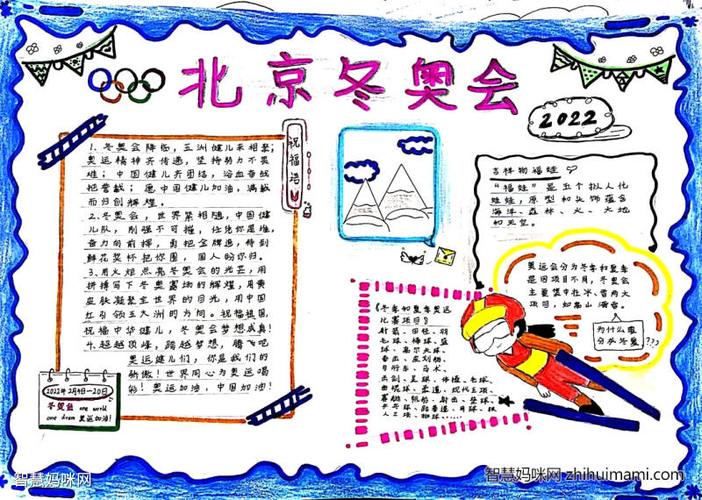 北京冬奥会
2022
祝福语
1.冬奥会降临,五洲健儿来相聚;
奥运精神齐传递,坚持努力不畏
难;中国健儿齐团结,浴血奋战
把营截;愿中国健儿加油,满载
而归创辉煌。
2.冬奥会,世界紧相随,中国健
儿队,刚强不可摧,任凭你是谁,
奋力向前挥,勇把金牌追,待到
鲜花奖杯把你围,国人盼你归。
3.用火炬点亮冬奥会的光芒,用
拼搏写下冬奥赛场的辉煌,用黄
皮肤凝聚全世界的目光,用中国
红引领五大洲的方向。祝福祖国,
祝福中华健儿,冬奥会梦想成真!
4.超越顶峰,跨越梦想,腾飞吧
奥运健儿们,你是我们的
骄傲!世界同心为奥运喝
彩!奥运加油,中国加油!
2022年2月4日—20日
冬奥会 one world
one dream 奥运加油!
吉祥物福娃
“福娃”是五个拟人化
娃娃,原型和头饰蕴含
海洋、森林、火、大地
和天空。
奥运会分为冬季和夏季
是因项目不同,冬奥会
主要集中在冰、雪两大
项目,如高山滑雪。
为什么要
分冬夏
???
《冬季和夏季奥运
比赛项目》
射箭、田径、羽
毛球、棒球、篮
球、高尔夫球、
拳击、皮划艇、
自行车、马术、
击剑、足球、体操、手球、
曲棍球、柔道、现代五项、
赛艇、帆船、射击、垒球、
乒乓球、跆拳道、网球、铁
人三项、排球……
智慧妈咪网
智慧妈咪网 zhihuimami.com